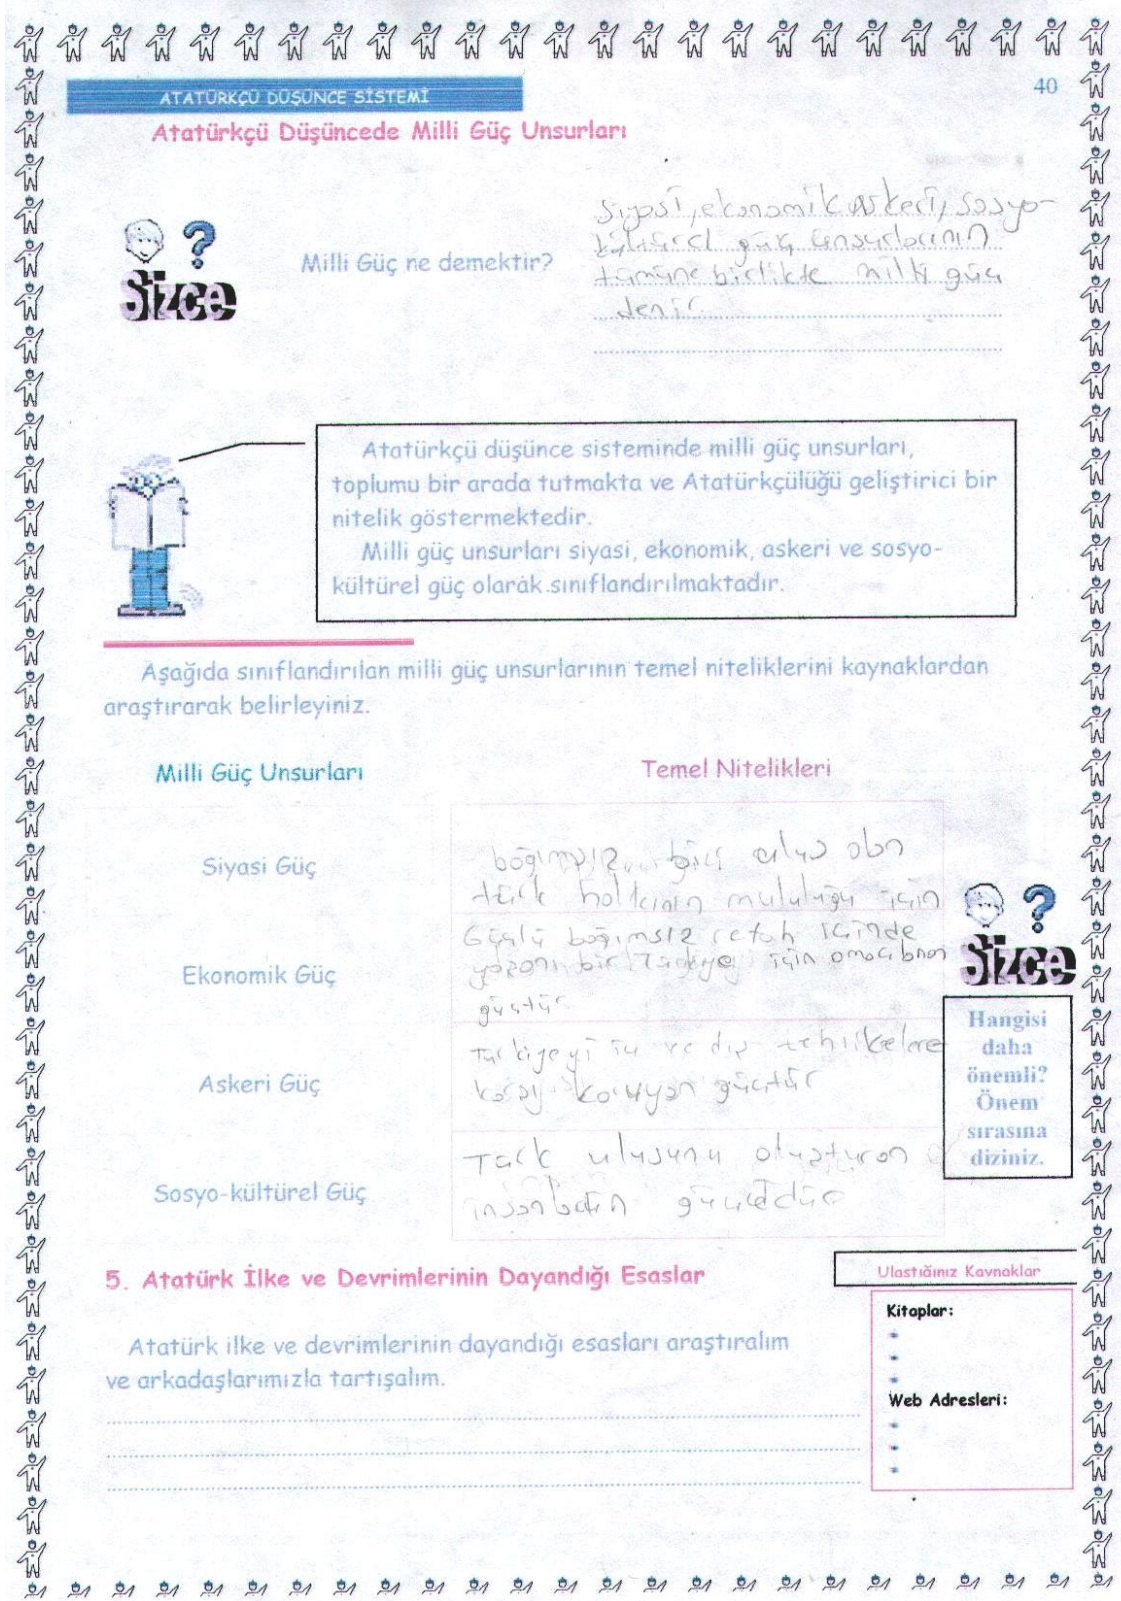 ATATÜRKÇÜ DÜŞÜNCE SİSTEMİ
40
Atatürkçü Düşüncede Milli Güç Unsurları
Sizce
Milli Güç ne demektir?
Siyasi, ekonomik, Askeri, sosyo-
kültürel güç unsurlarının
tümüne birlikte milli güç
denir
Atatürkçü düşünce sisteminde milli güç unsurları,
toplumu bir arada tutmakta ve Atatürkçülüğü geliştirici bir
nitelik göstermektedir.
Milli güç unsurları siyasi, ekonomik, askeri ve sosyo-
kültürel güç olarak sınıflandırılmaktadır.
Aşağıda sınıflandırılan milli güç unsurlarının temel niteliklerini kaynaklardan
araştırarak belirleyiniz.
Milli Güç Unsurları
Temel Nitelikleri
Siyasi Güç
bağımsız ulus olan
türk halkının için
Ekonomik Güç
Güçlü bağımsız refah içinde
bir Türkiye için
güçtür
Askeri Güç
Türkiyeyi iç ve dış tehlikelere
karşı koruyan güçtür
Sosyo-kültürel Güç
Türk ulusunu oluşturan
insanların gücüdür
Sizce
Hangisi
daha
önemli?
Önem
sırasına
diziniz.
5. Atatürk İlke ve Devrimlerinin Dayandığı Esaslar
Atatürk ilke ve devrimlerinin dayandığı esasları araştıralım
ve arkadaşlarımızla tartışalım.
Ulaştığınız Kaynaklar
Kitaplar:
*
*
*
Web Adresleri:
*
*
*